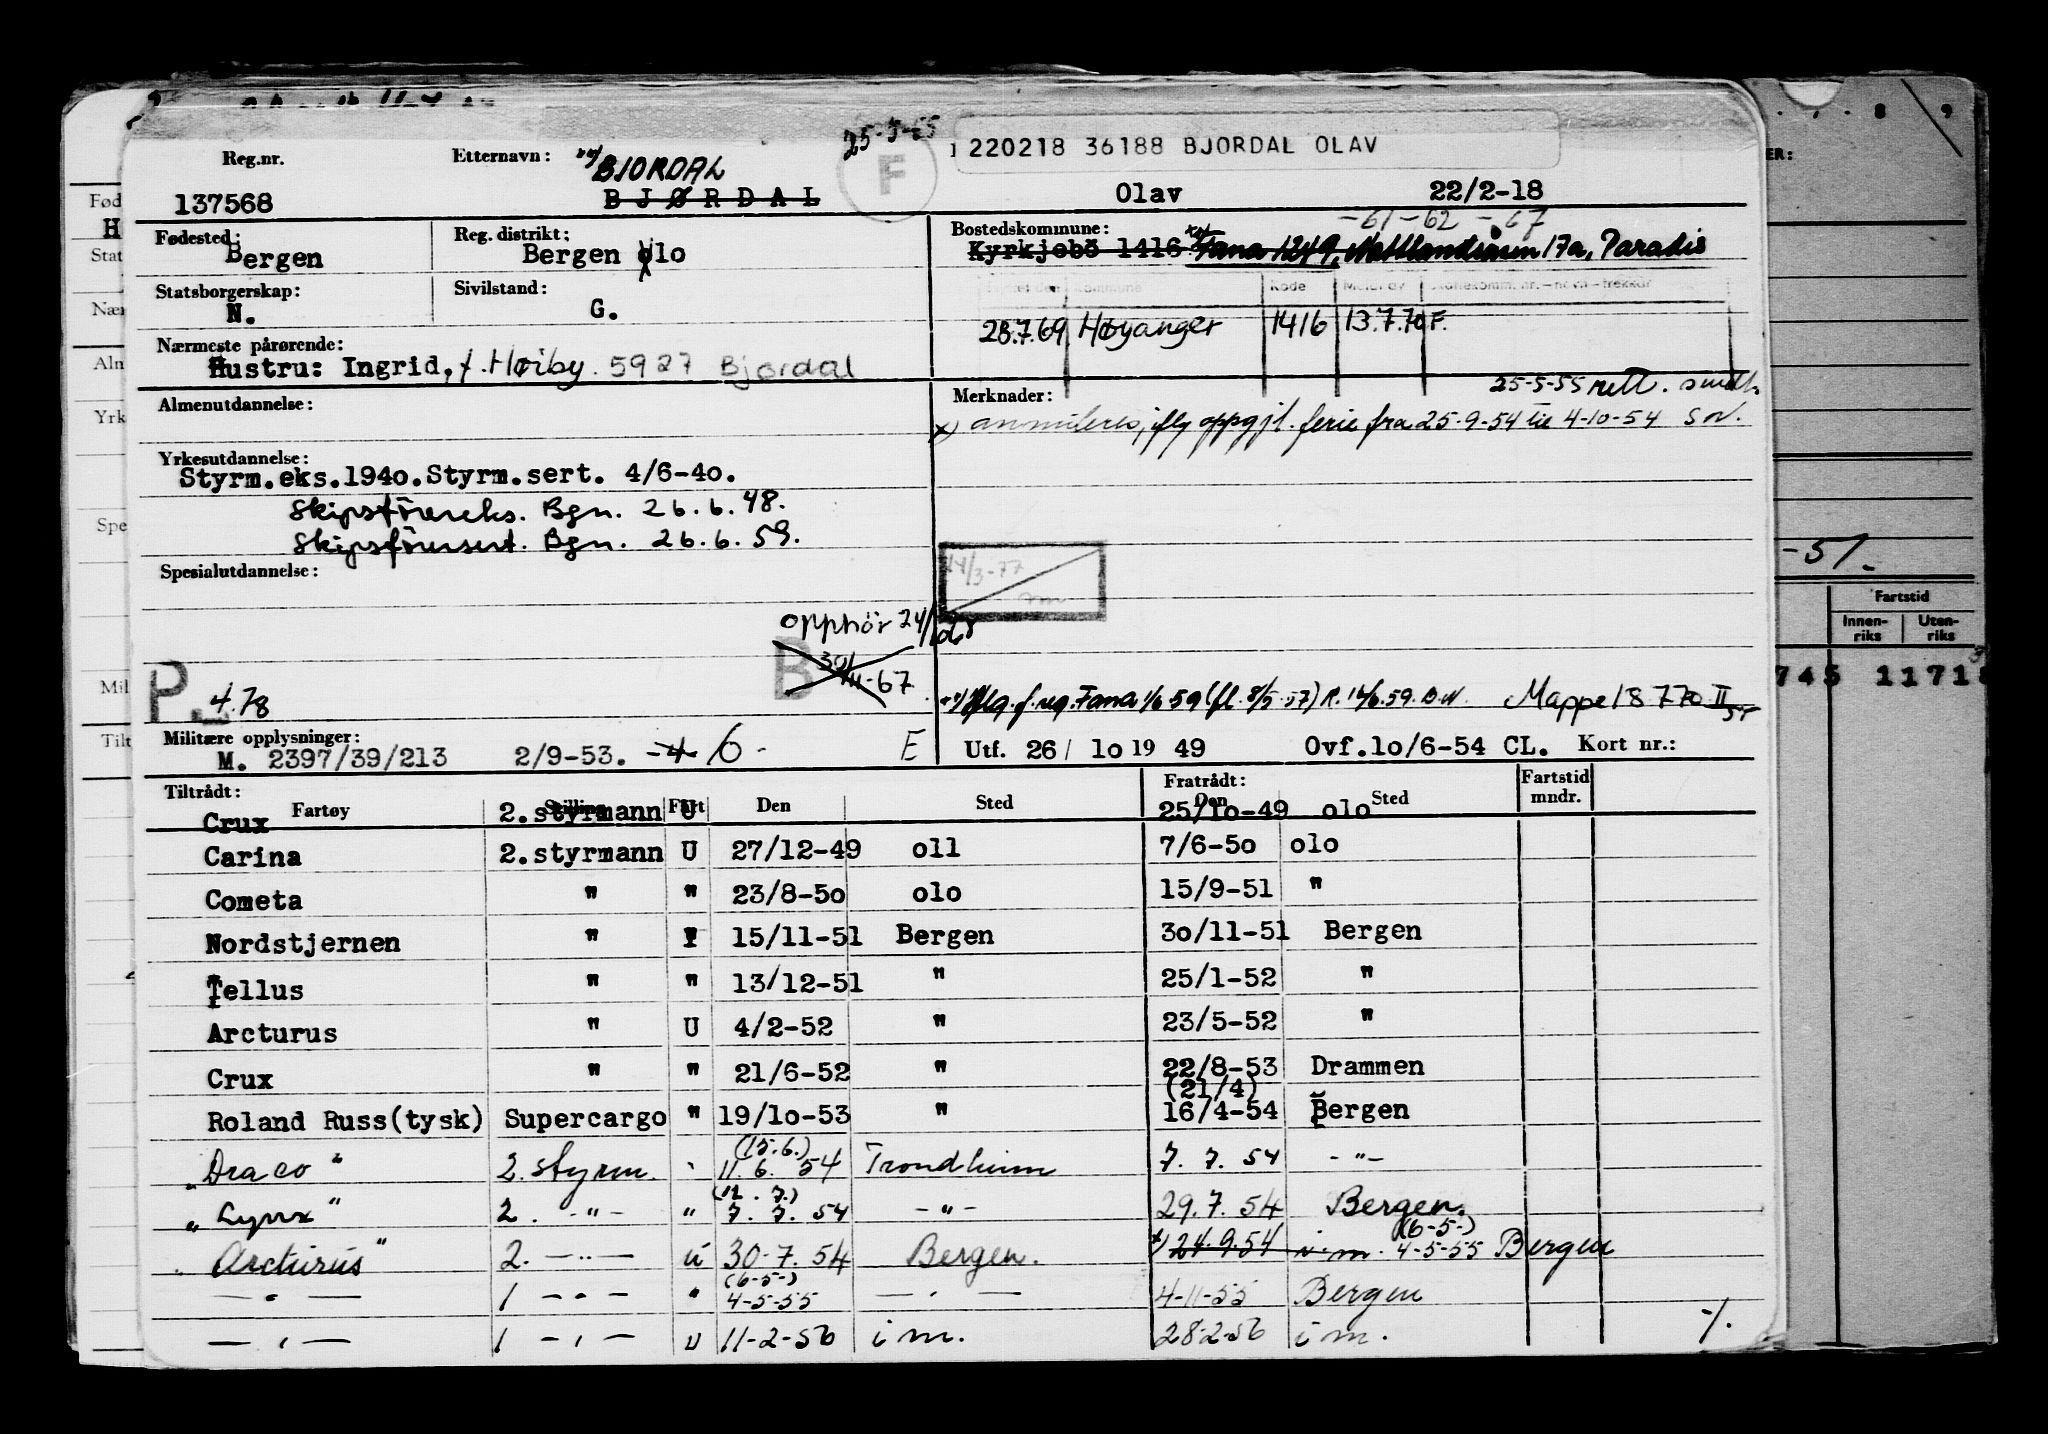 25-5-55
F
220218 36188 BJORDAL OLAV
Reg.nr.
Etternavn:
xx) BJORDAL
137568
BJØRDAL
Olav
22/2-18
-61-62-67
Fødested:
Bergen
Reg. distrikt:
Bergen olo
Bostedskommune:
Kyrkjebö 1416 Fana 1249, Nattlandsveien 17a, Paradis
Statsborgerskap:
N.
Sivilstand:
G.
Kode
28.7.69 Høyanger 1416 13.7.70 F.
Nærmeste pårørende:
Hustru: Ingrid, f. Høiby. 5927 Bjordal
Almenutdannelse:
Merknader:
25-5-55 rett.
x) annulleres, iflg oppgj. ferie fra 25-9-54 til 4-10-54
Yrkesutdannelse:
Styrm.eks.1940.Styrm.sert. 4/6-40.
Skipsförereks. Bgn. 26.6.48.
Skipsförersert. Bgn. 26.6.59.
Spesialutdannelse:
14/3-77
opphör
B
-67
P.
4.78
Mappe 18770 II
Militære opplysninger:
M. 2397/39/213 2/9-53. -4 6- E
Utf. 26/ 10 19 49 Ovf.lo/6-54 CL. Kort nr.:
Tiltrådt:
Fratrådt:
Fartstid mndr.
Fartøy Stilling Fart Den Sted Den Sted
Crux 2.styrmann U 25/10-49 olo
Carina 2.styrmann U 27/12-49 oll 7/6-50 olo
Cometa " " 23/8-50 olo 15/9-51 "
Nordstjernen " I 15/11-51 Bergen 30/11-51 Bergen
Tellus " " 13/12-51 " 25/1-52 "
Arcturus " U 4/2-52 " 23/5-52 "
Crux " " 21/6-52 " 22/8-53 Drammen
(21/4)
Roland Russ(tysk) Supercargo " 19/10-53 " 16/4-54 Bergen
(15.6.)
"Draco" 2.styrm. " 11.6. 54 Trondheim 7. 7. 54 - " -
(12. 7.)
"Lynx" 2. -"- " 7. 7. 54 - " - 29.7. 54 Bergen.
(6-5-)
"Arcturus" 2. -"- u 30-7. 54 Bergen. x) 24.9.54 i.m. 4-5-55 Bergen
(6-5-)
- " - 1 - " - " 4-5-55 - " - 4-11-55 Bergen
- " - 1 - " - u 11-2-56 i m. 28-2-56 i m.
-/.
8 9
ER:
-51.
Fartstid
Innen-riks
Uten-riks
745 11718
Fød
H
Stat
Nær
Alm
Yrk
Spe
Mil
Tilt